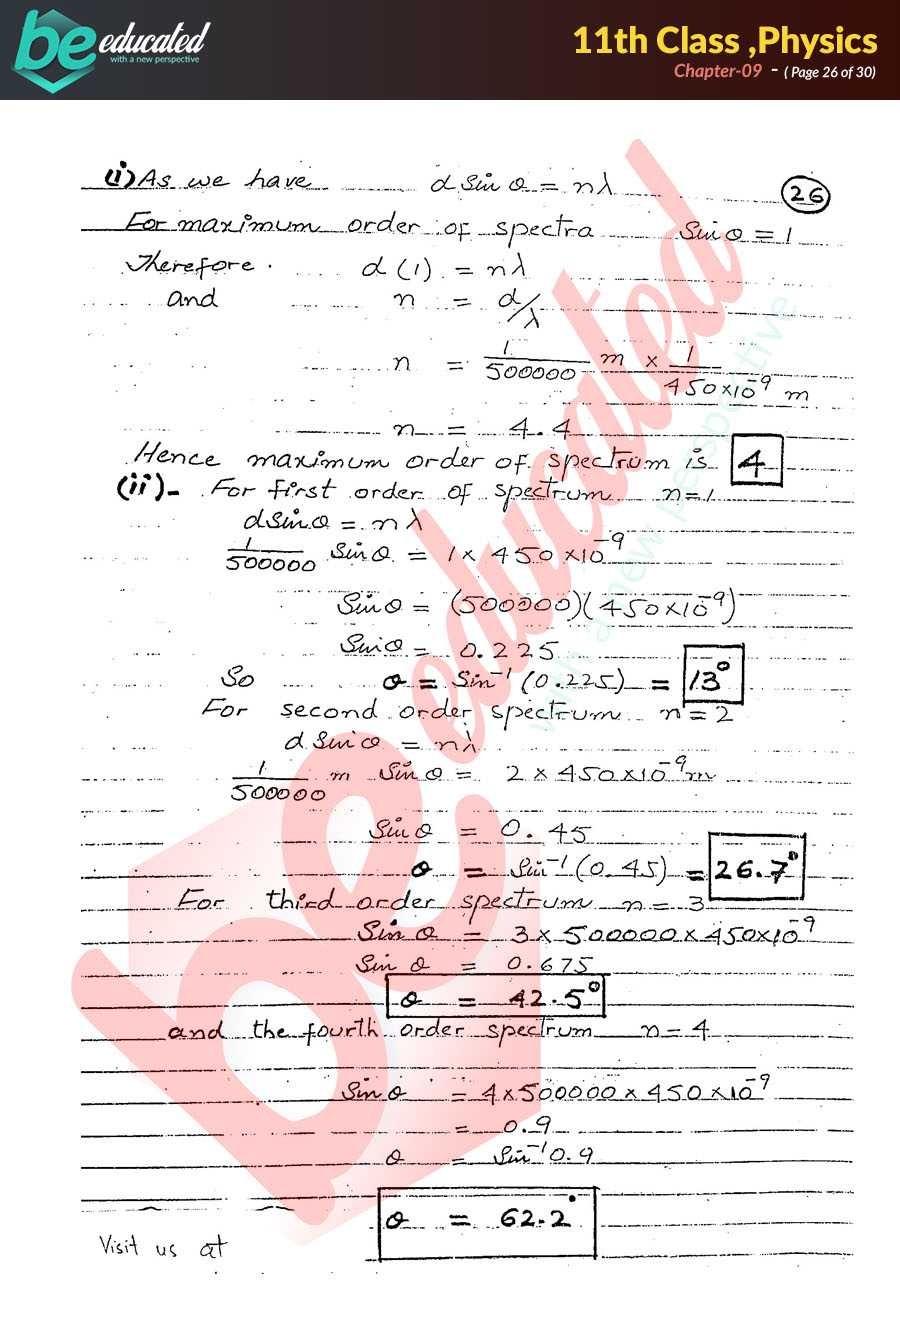 be educated
with a new perspective
11th Class ,Physics
Chapter-09 - ( Page 26 of 30)
(i) As we have d Sin θ = nλ
26
For maximum order of spectra Sin θ = 1
Therefore. d (1) = nλ
and n = d/λ
n = 1/500000 m × 1/450×10⁻⁹ m
n = 4.4
Hence maximum order of spectrum is 4
(ii)- For first order of spectrum n=1
dSinθ = nλ
1/500000 Sinθ = 1× 450 ×10⁻⁹
Sinθ = (500000)(450×10⁻⁹)
Sinθ = 0.225
So θ = Sin⁻¹ (0.225) = 13°
For second order spectrum n=2
d Sin θ = nλ
1/500000 m Sin θ = 2 × 450×10⁻⁹m
Sin θ = 0.45
θ = Sin⁻¹ (0.45) = 26.7°
For third order spectrum n=3
Sin θ = 3×500000×450×10⁻⁹
Sin θ = 0.675
θ = 42.5°
and the fourth order spectrum n=4
Sin θ = 4×500000×450×10⁻⁹
= 0.9
θ = Sin⁻¹0.9
θ = 62.2°
Visit us at
be educated
with a new perspective